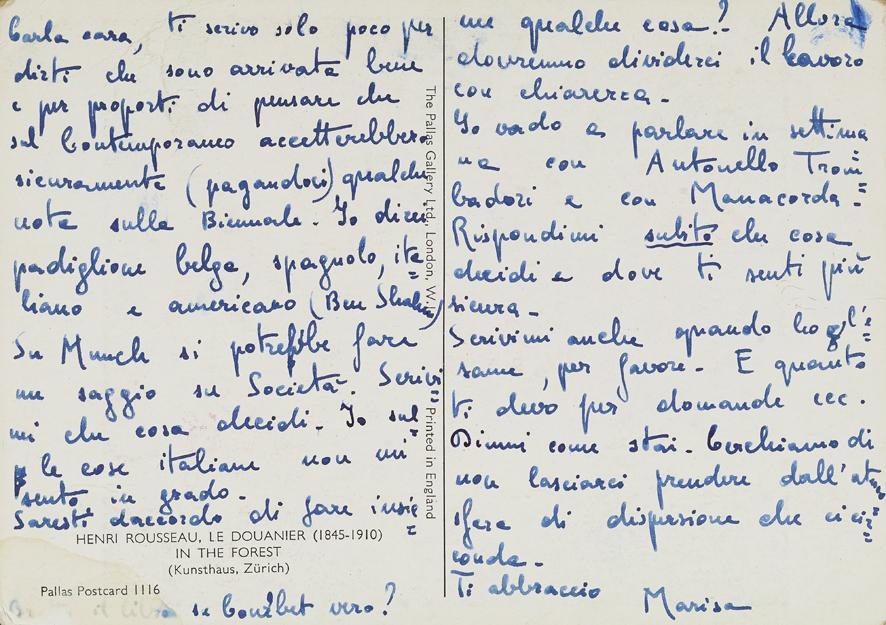 Carla cara, ti scrivo solo poco per
dirti che sono arrivata bene
e per proporti di pensare che
sul Contemporaneo accetterebbero
sicuramente (pagandoci) qualche
nota sulla Biennale. Io direi
padiglione belga, spagnolo, ita=
liano e americano (Ben Shahn)
Su Munch si potrebbe fare
un saggio su Società. Scrivi=
mi che cosa decidi. Io sul=
le cose italiane non mi
sento in grado.
Saresti daccordo di fare insie=
HENRI ROUSSEAU, LE DOUANIER (1845-1910)
IN THE FOREST
(Kunsthaus, Zürich)
Pallas Postcard 1116
il libro se Courbet vero?
The Pallas Gallery Ltd., London, W.1. Printed in England
me qualche cosa? Allora
dovremmo dividerci il lavoro
con chiarezza.
Io vado a parlare in settima
na con Antonello Trom=
badori e con Manacorda=
Rispondimi subito che cosa
decidi e dove ti senti più
sicura.
Scrivimi anche quando ho l'e=
same, per favore. E quanto
ti devo per domande ecc.
Dimmi come stai. Cerchiamo di
non lasciarci prendere dall'atmo=
sfera di dispersione che ci cir=
conda.
Ti abbraccio
Marisa